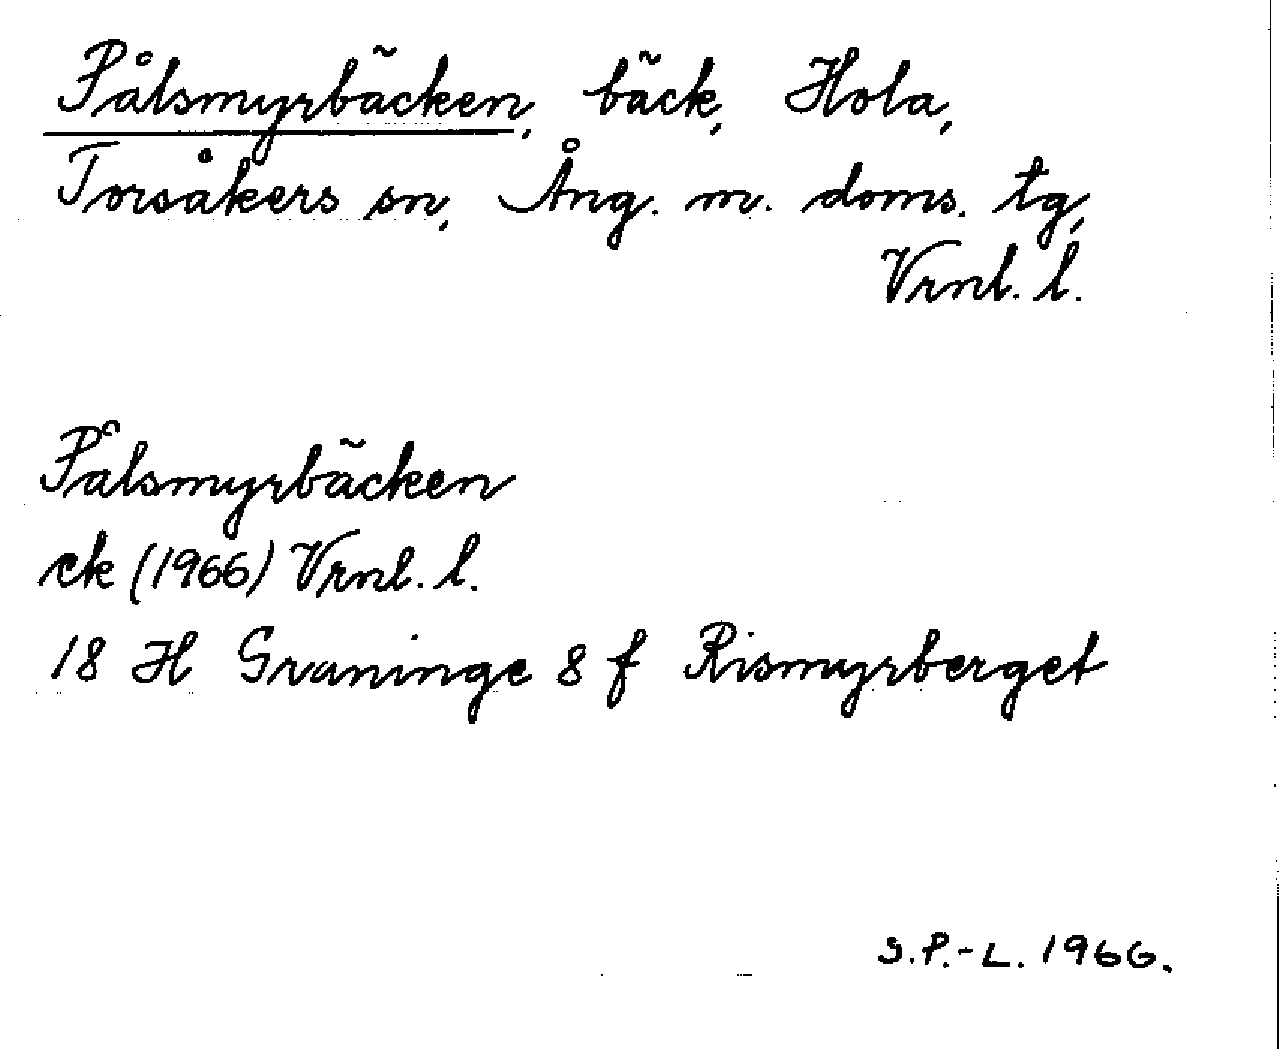 Pålsmyrbäcken, bäck, Hola,
Torsåkers sn, Ång. m. doms. tg,
Vrnl. l.
Pålsmyrbäcken
ek (1966) Vrnl. l.
18 H Graninge 8 f Rismyrberget
S.P.-L. 1966.